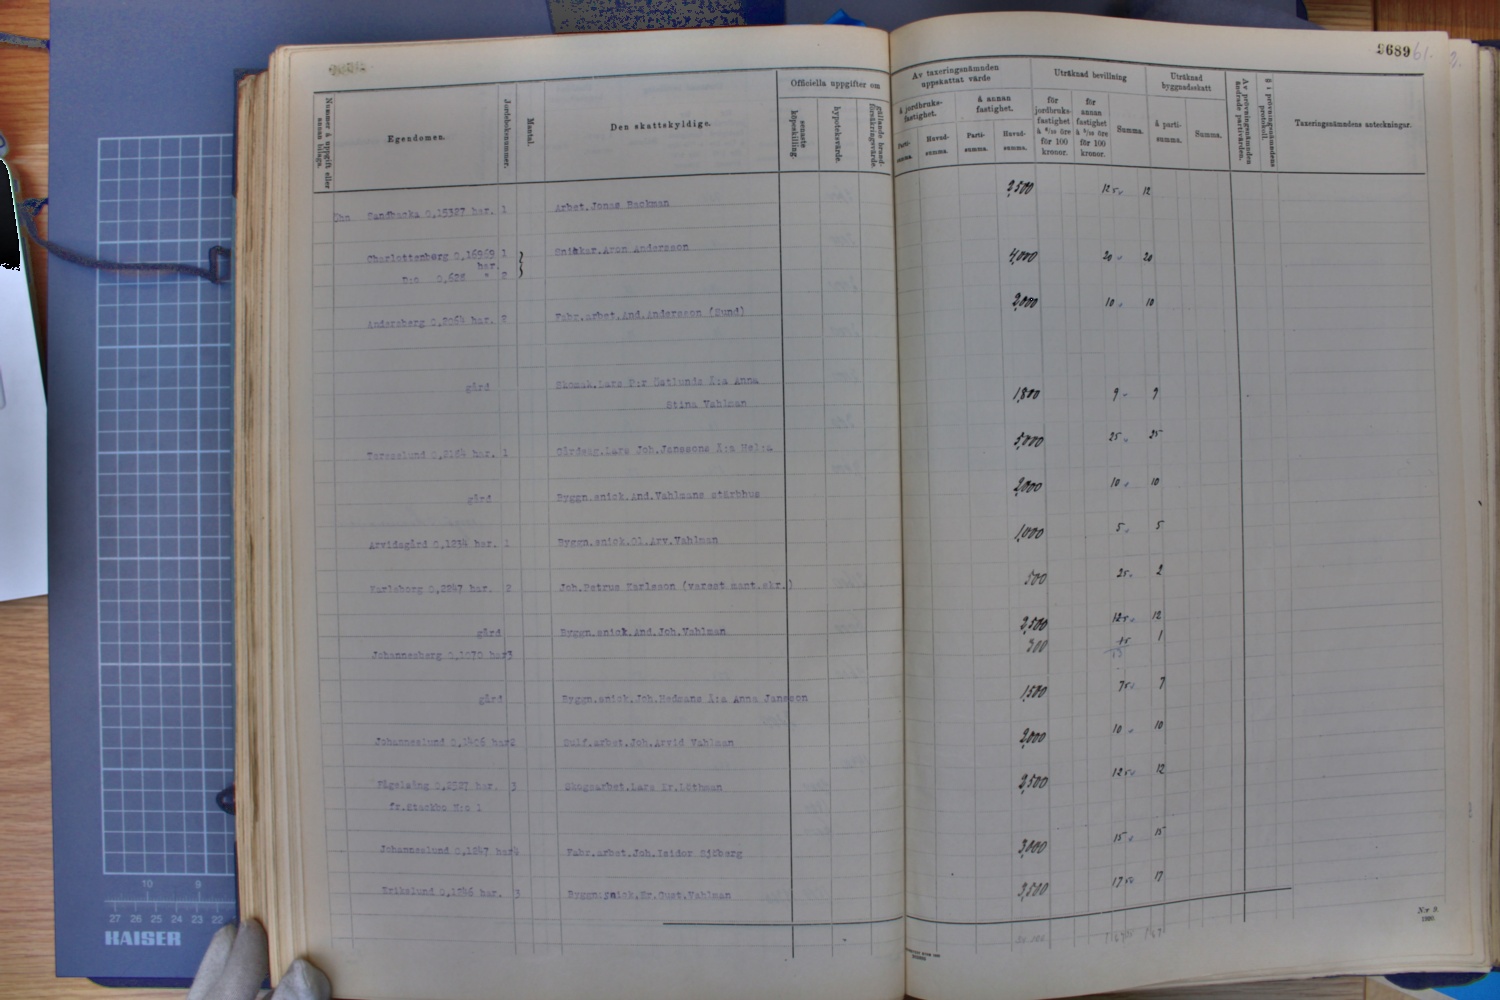 9689
61.
Nummer å uppgift eller annan bilaga.
Egendomen.
Jordeboksnummer.
Mantal.
Den skattskyldige.
Officiella uppgifter om
senaste köpeskilling.
hypoteksvärde.
gällande brandförsäkringsvärde.
Av taxeringsnämnden uppskattat värde
å jordbruksfastighet.
å annan fastighet.
Partisumma.
Huvudsumma.
Partisumma.
Huvudsumma.
Uträknad bevillning
för jordbruksfastighet å 6/10 öre för 100 kronor.
för annan fastighet å 5/10 öre för 100 kronor.
Summa.
Uträknad byggnadsskatt
å partisumma.
Summa.
Av prövningsnämnden ändrade partivärden.
§ i prövningsnämndens protokoll.
Taxeringsnämndens anteckningar.
Sandbacka 0,15327 har. 1 Arbet. Jonas Backman 2,500 12 50 12
Charlottenberg 0,16969 har. 1 Snickar. Aron Andersson 4,000 20 - 20
D:o 0,626 " 2
Andersberg 0,2064 har. 2 Fabr.arbet. And. Andersson (Sund) 2,000 10 - 10
gård Skomak. Lars P:r Östlunds Ä:a Anna Stina Vahlman 1,800 9 - 9
har. 1 Lars Joh. Janssons Ä:a Hel:a 5,000 25 - 25
gård Byggn.snick. And. Vahlmans stärbhus 2,000 10 - 10
Arvidsgård 0,1234 har. 1 Byggn.snick. Ol. Arv. Vahlman 1,000 5 - 5
Karlsberg 0,2247 har. 2 Joh. Petrus Karlsson (varest mant.skr.) 500 2 50 2
gård Byggn.snick. And. Joh. Vahlman 2,500 12 50 12
Johannesberg 0,1070 har 3 300 1
gård Byggn.snick. Joh. Hedmans Ä:a Anna Jansson 1,500 7 50 7
Johanneslund 0,1496 har 2 Sulf.arbet. Joh. Arvid Vahlman 2,000 10 - 10
Fågelsång 0,2527 har. 3 Skogsarbet. Lars Er. Löthman 2,500 12 50 12
fr. Stackbo N:o 1
Johanneslund 0,1247 har 4 Fabr.arbet. Joh. Isidor Sjöberg 3,000 15 - 15
Erikslund 0,1246 har. 3 Byggn.snick. Er. Gust. Vahlman 3,500 17 50 17
N:r 9.
KAISER
10 9
27 26 25 24 23 22